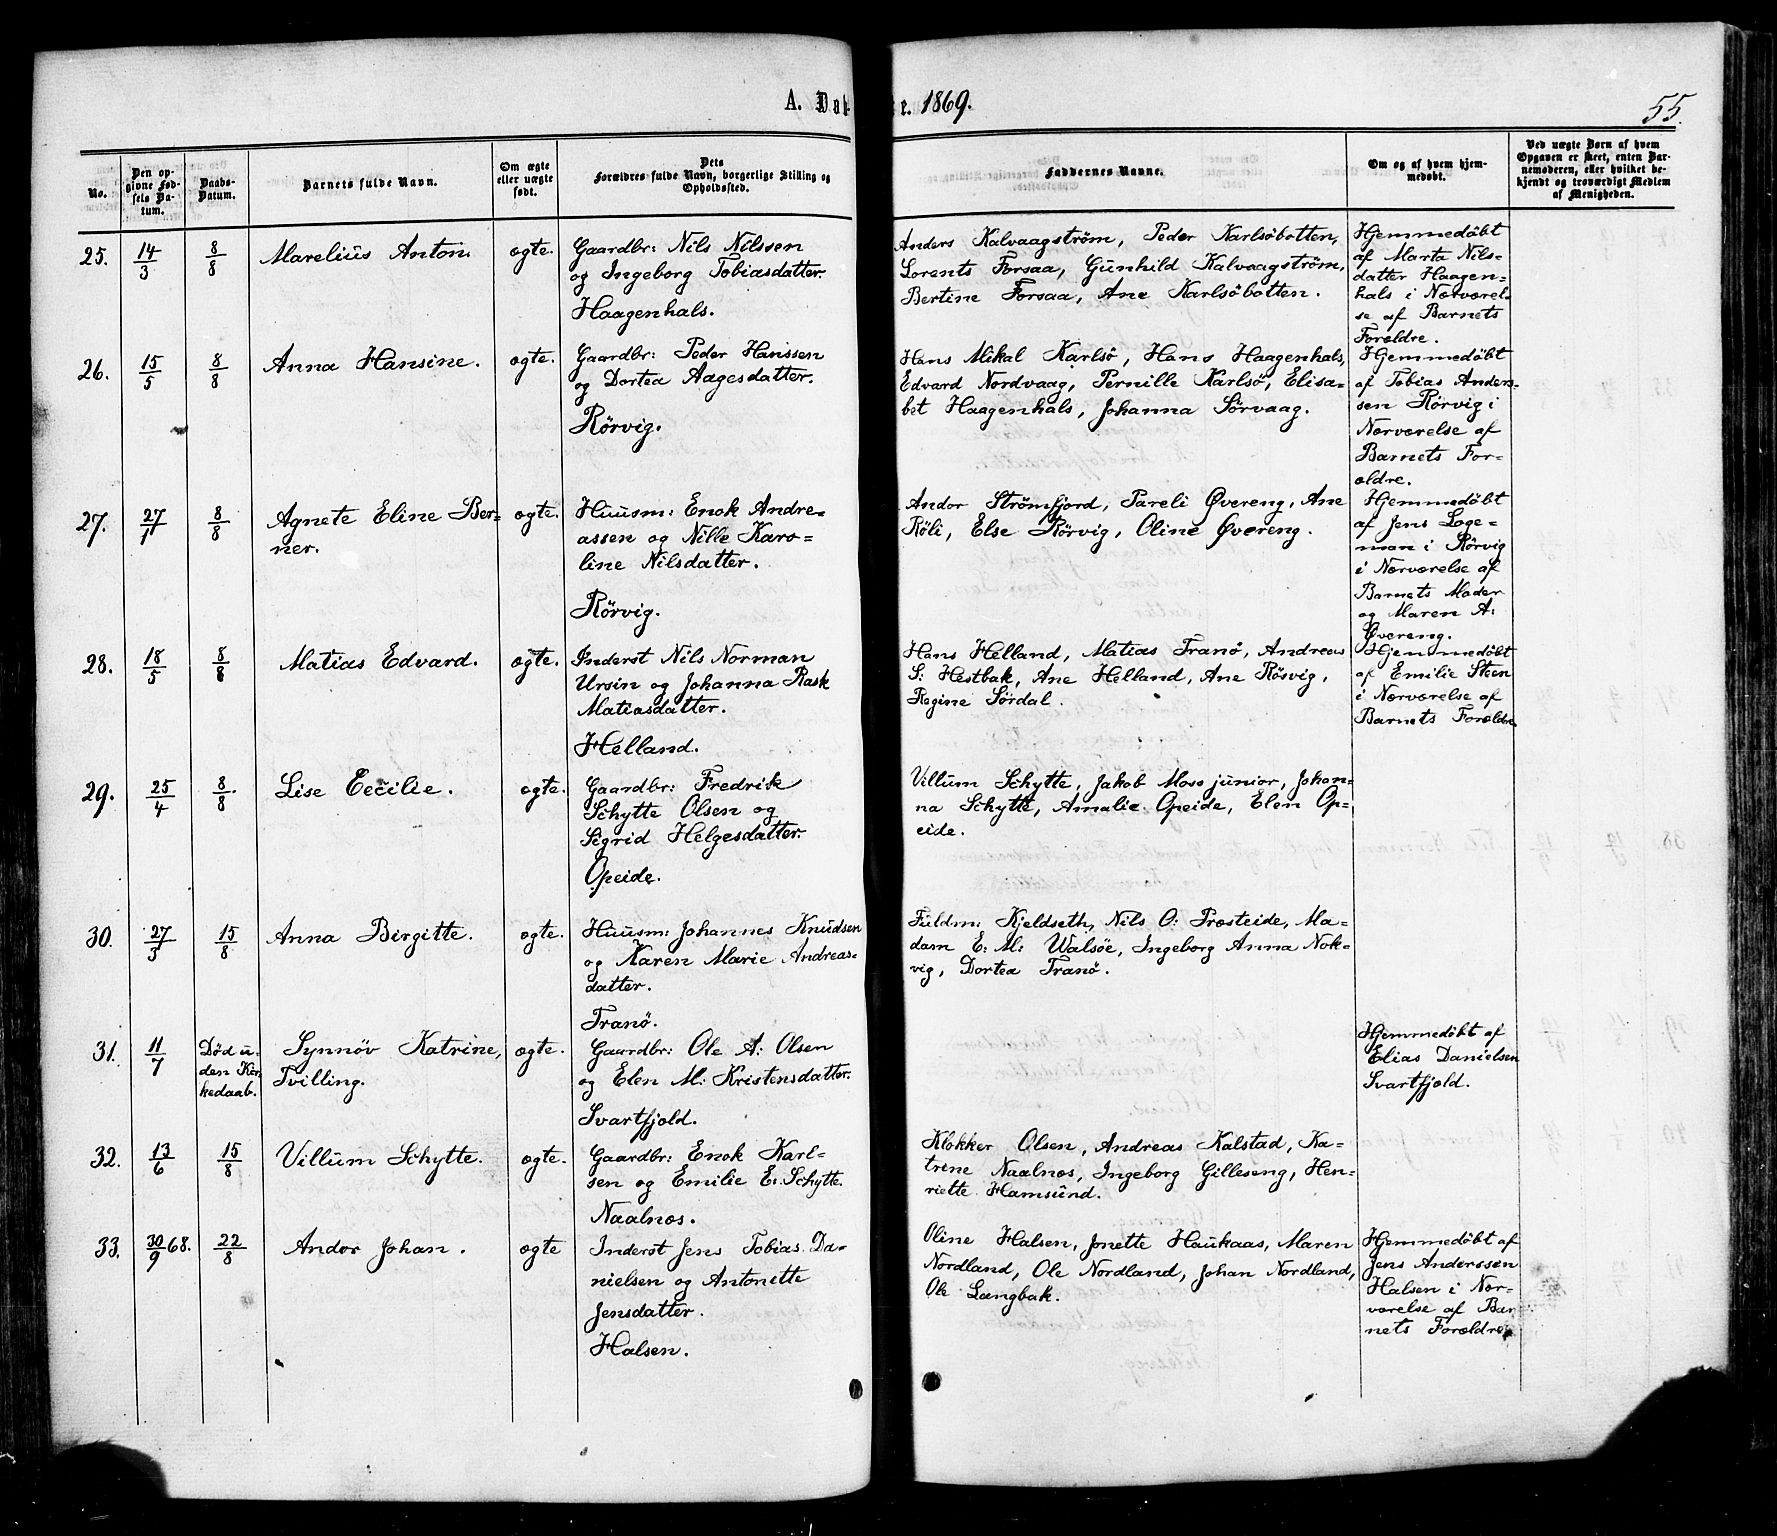 A. Døb
te. 1869.
55.
No.
Den op-
givne Fød-
sels Da-
tum.
Daabs-
Datum.
Barnets fulde Navn.
Om ægte
eller uægte
født.
Dets
Forældres fulde Navn, borgerlige Stilling og
Opholdssted.
Faddernes Navne.
Om og af hvem hjem-
medøbt.
Ved uægte Børn af hvem
Opgaven er skeet, enten Bar-
nemoderen, eller hvilket be-
kjendt og troværdigt Medlem
af Menigheden.
25. 14/3 8/8 Marelius Anton. ægte.
Gaardbr: Nils Nilssen
og Ingeborg Tobiasdatter.
Haagenhals.
Anders Kalvaagström, Peder Karlsöbotten,
Lorents Forsaa, Gunhild Kalvaagström,
Bertine Forsaa, Ane Karlsöbotten.
Hjemmedøbt
af Marta Nils-
datter Haagen-
hals i Nærværel-
se af Barnets
Forældre.
26. 15/5 8/8 Anna Hansine. ægte.
Gaardbr: Peder Hanssen
og Dortea Aagesdatter.
Rörvig.
Hans Mikal Karlsö, Hans Haagenhals,
Edvard Nordvaag, Pernille Karlsö, Elisa-
bet Haagenhals, Johanna Sörvaag.
Hjemmedøbt
af Tobias Anders-
sen Rörvig i
Nærværelse af
Barnets For-
ældre.
27. 27/1 8/8 Agnete Eline Ber-
ner.
ægte.
Huusm: Enok Andre-
assen og Nille Karo-
line Nilsdatter.
Rörvig.
Andor Strömfjord, Pareli Øvereng, Ane
Röli, Else Rörvig, Oline Øvereng.
Hjemmedøbt
af Jens Loge-
man i Rörvig
i Nærværelse af
Barnets Moder
og Maren A:
Øvereng.
28. 18/5 8/8 Matias Edvard. ægte.
Inderst Nils Norman
Ursin og Johanna Rask
Matiasdatter.
Helland.
Hans Helland, Matias Tranö, Andreas
S: Hestbak, Ane Helland, Ane Rösvig,
Regine Sördal.
Hjemmedøbt
af Emilie Steen
i Nærværelse af
Barnets Forældre
29. 25/4 8/8. Lise Cecilie. ægte.
Gaardbr: Fredrik
Schytte Olsen og
Sigrid Helgesdatter.
Opeide.
Villum Schytte, Jakob Moss junior, Johan-
na Schytte, Amalie Opeide, Elen Op-
eide.
30. 27/3 15/8 Anna Birgitte. ægte.
Huusm: Johannes Knudsen
og Karen Marie Andreas-
datter.
Tranö.
Fuldm: Kjeldseth, Nils O: Præsteide, Ma-
dam E: M: Walsöe, Ingeborg Anna Nok-
vig, Dortea Tranö.
31. 11/7 Død u-
den Kir-
kedaab.
Synnöv Katrine,
Tvilling.
ægte.
Gaardbr: Ole A: Olsen
og Elen M: Kristensdatter.
Svartfjeld.
Hjemmedøbt af
Elias Danielsen
Svartfjeld.
32. 13/6 15/8 Villum Schytte. ægte.
Gaardbr: Enok Karl-
sen og Emilie E: Schytte.
Naalnæs.
Klokker Olsen, Andreas Kalstad, Ka-
trine Naalnæs, Ingeborg Gilleseng, Hen-
riette Hamsund.
33. 30/9 68. 22/8 Andor Johan. ægte
Inderst Jens Tobias Da-
nielsen og Antonette
Jensdatter.
Halsen.
Oline Halsen, Jonette Haukaas, Maren
Nordland, Ole Nordland, Johan Nordland,
Ole Langbak.
Hjemmedøbt af
Jens Anderssen
Halsen i Nær-
værelse af Bar
nets Forældre